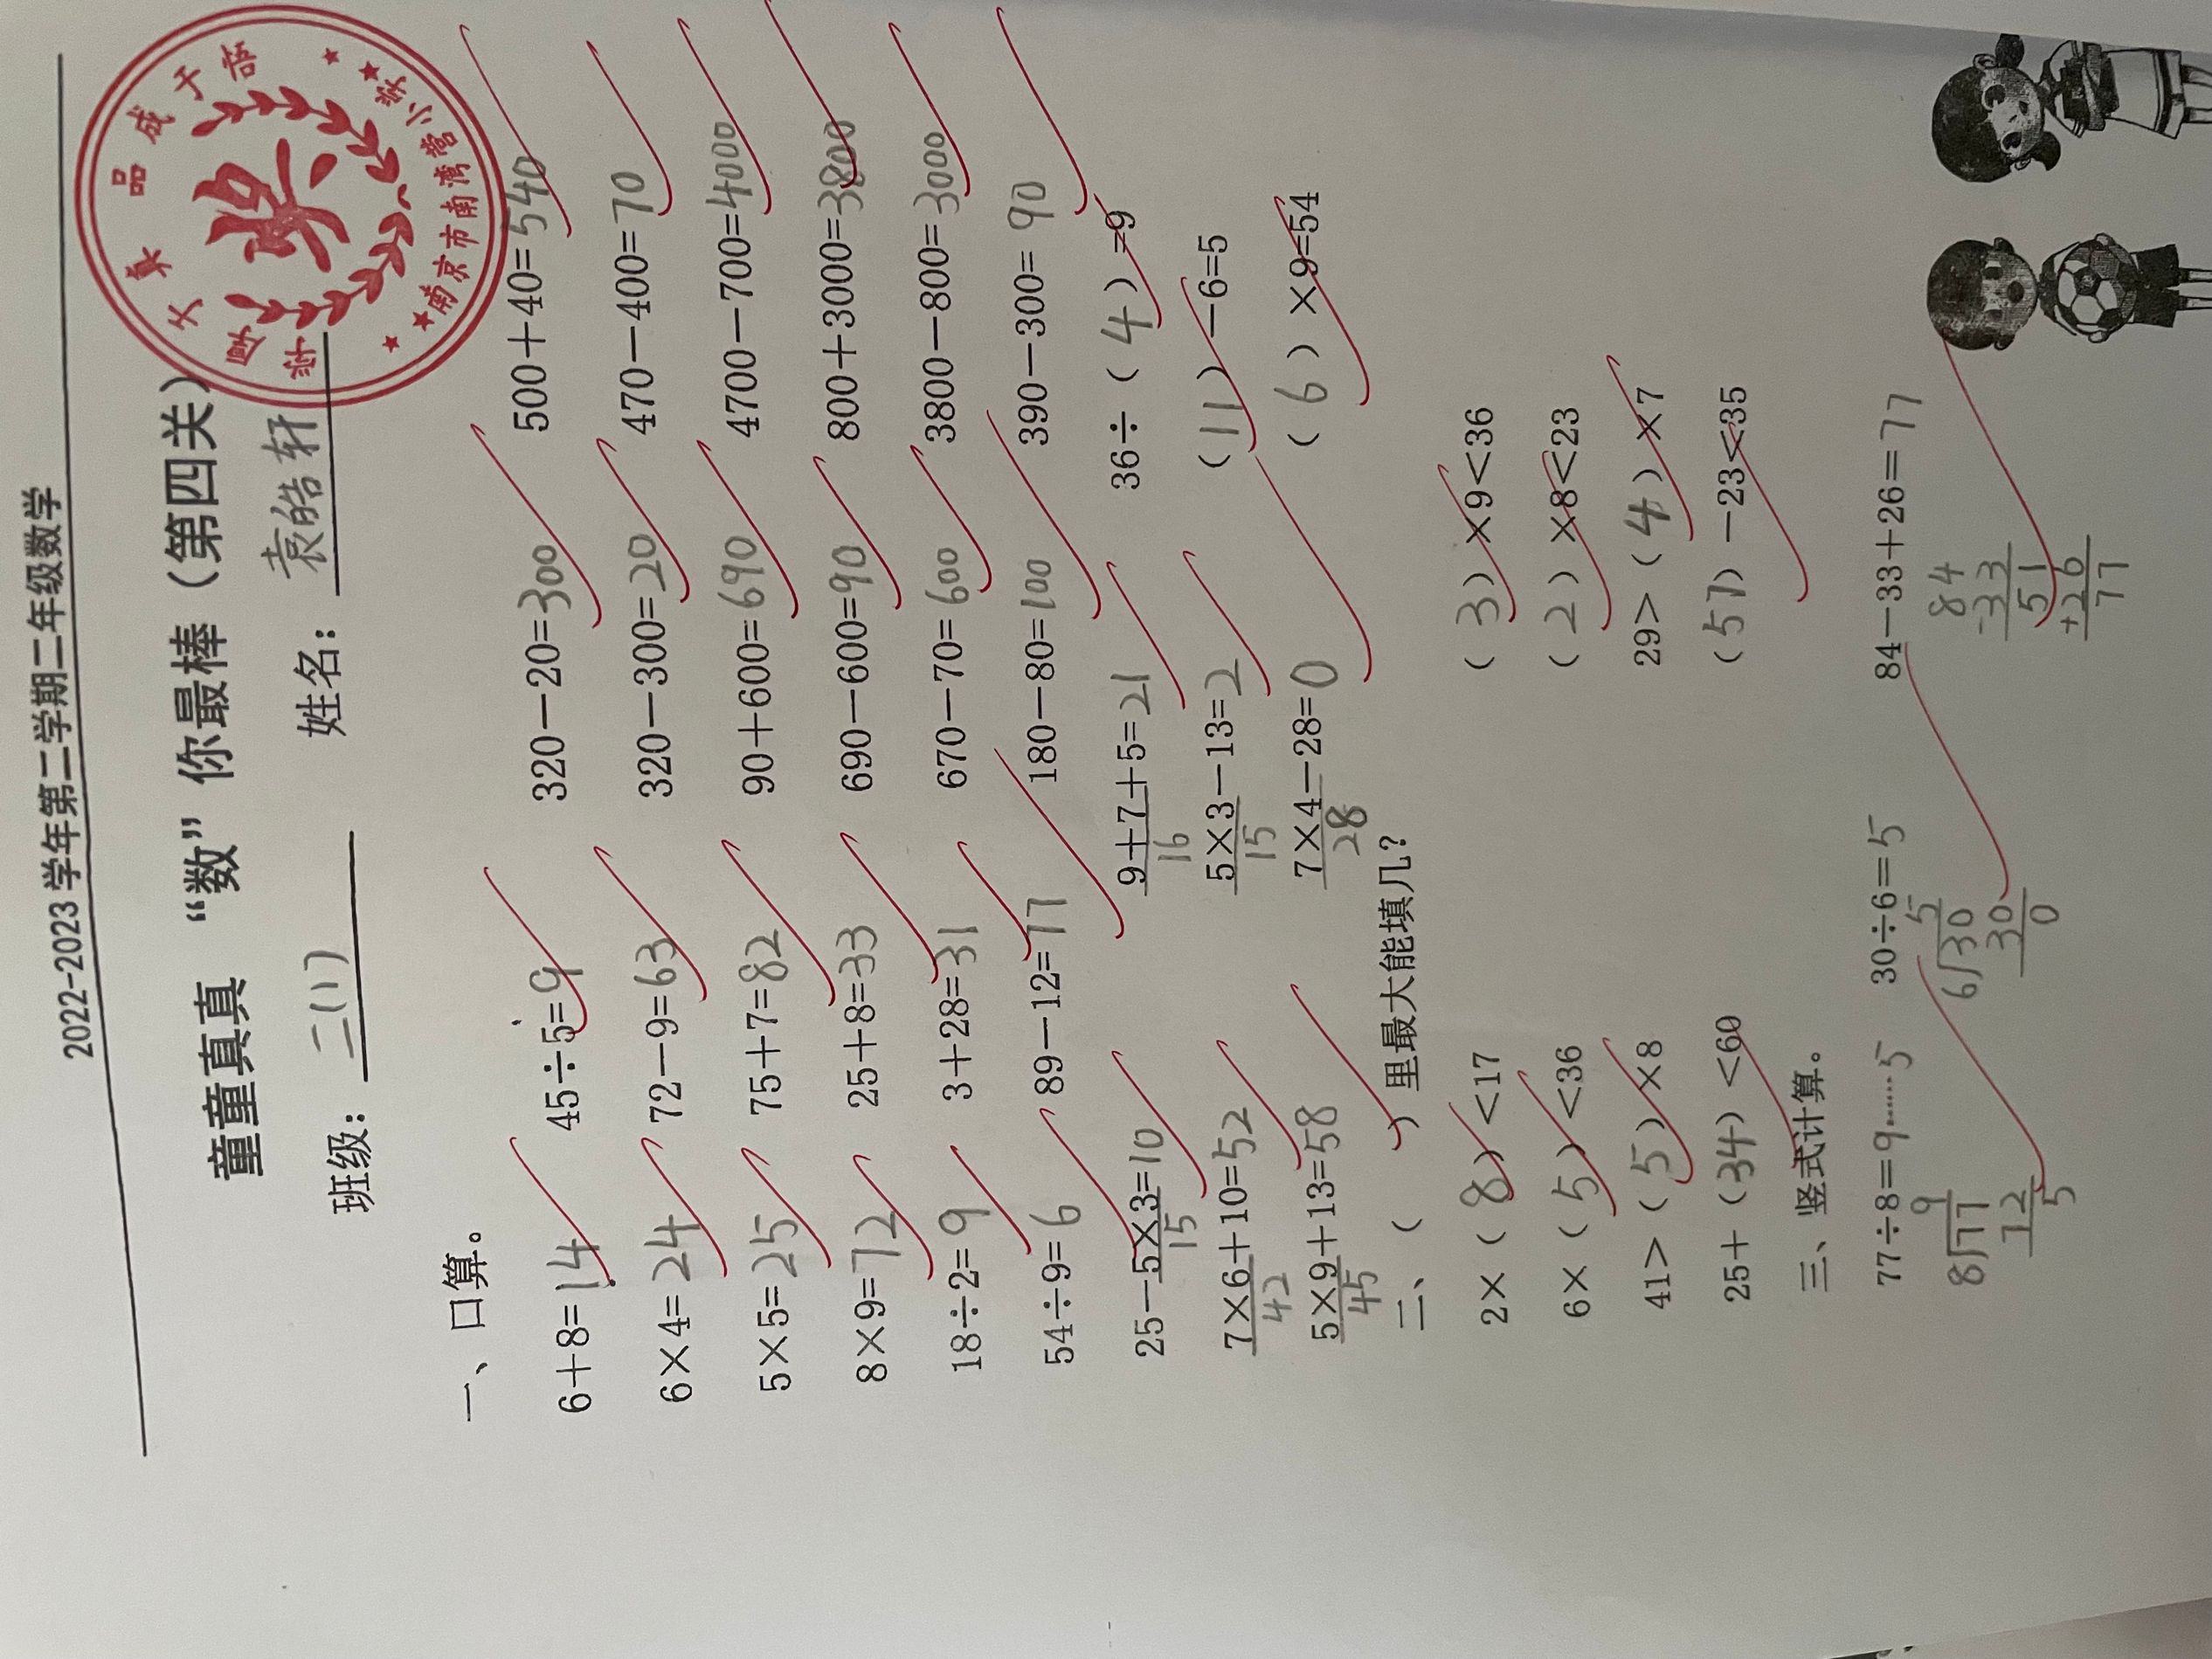 2022-2023 学年第二学期二年级数学
童童真真 “数”你最棒（第四关）
班级：二(1) 姓名：袁皓轩
品成于悟
奖
南京市南湾营小学
一、口算。
6+8=14 45÷5=9 320-20=300 500+40=540
6×4=24 72-9=63 320-300=20 470-400=70
5×5=25 75+7=82 90+600=690 4700-700=4000
8×9=72 25+8=33 690-600=90 800+3000=3800
18÷2=9 3+28=31 670-70=600 3800-800=3000
54÷9=6 89-12=77 180-80=100 390-300=90
25-5×3=10 9+7+5=21 36÷（4）=9
15 16
7×6+10=52 5×3-13=2 （11）-6=5
42 15
5×9+13=58 7×4-28=0 （6）×9=54
45 28
二、（ ）里最大能填几？
2×（8）<17 （3）×9<36
6×（5）<36 （2）×8<23
41>（5）×8 29>（4）×7
25+（34）<60 （57）-23<35
三、竖式计算。
77÷8=9……5 30÷6=5 84-33+26=77
9 5 84
8 77 6 30 -33
72 30 51
5 0 +26
77